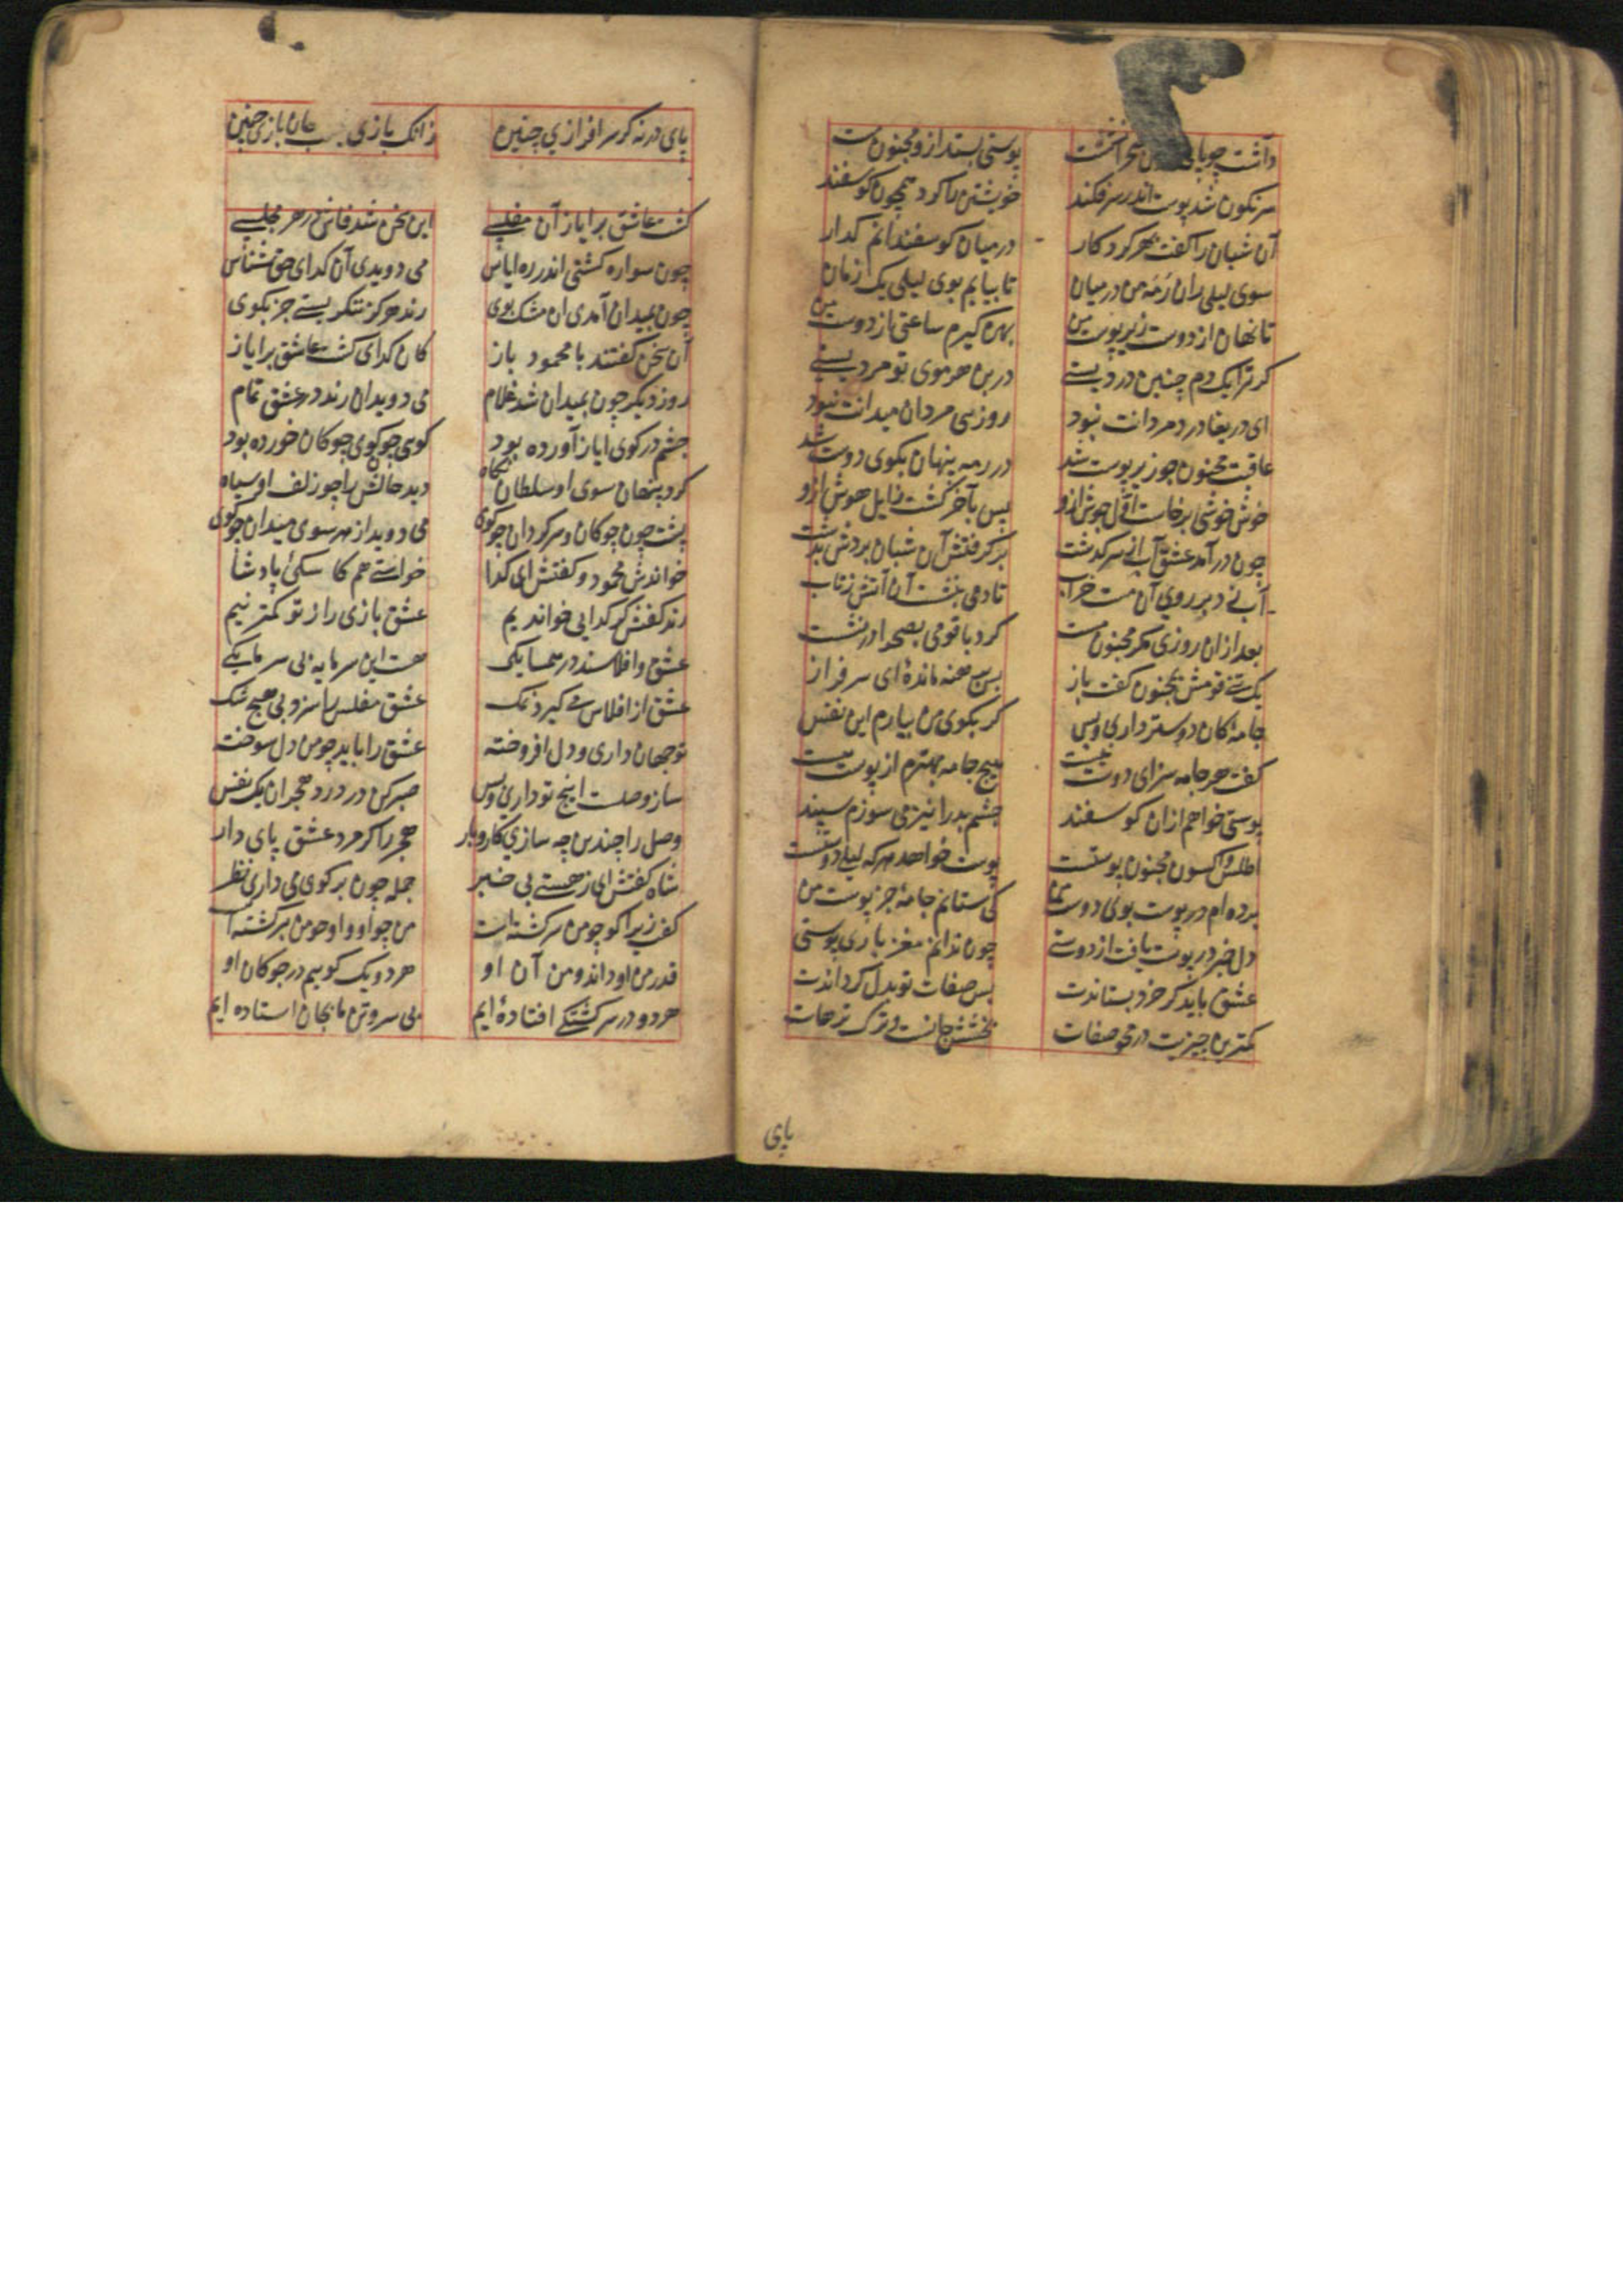 داشت چوپانی صحرا نشست پوستی بستد ازو مجنون مست
سرنگون شد پوست اندر سر فکند خویشتن را کرد همچون کوسفند
آن شبان را گفت بهر کردکار در میان کوسفندانم کذار
سوی لیلی ران رمه من در میان تا بیابم بوی لیلی یک زمان
تا نهان از دوست زیر پوست من بهره کیرم ساعتی از دوست من
کر ترا یک دم چنین دردیستی در بن هر موی تو مردیستی
ای دریغا درد مردانت نبود روزی مردان میدانت نبود
عاقبت مجنون چو زیر پوست شد در رمه پنهان بکوی دوست شد
خوش خوشی برخاست اول جوش ازو پس بآخر کشت زایل هوش ازو
چون درآمد عشق آب از سر کذشت برکرفتش آن شبان بردش بدشت
آب زد بر روی آن مست خراب تا دمی بنشست آن آتش ز تاب
بعد ازان روزی مکر مجنون مست کرد با قومی بصحرا در نشست
یک تن از قومش بمجنون گفت باز بس برهنه مانده ای سرفراز
جامه کان دوستر داری و بس کر بکوی من بیارم این نفس
گفت هر جامه سزای دوست نیست هیچ جامه بهترم از پوست نیست
پوستی خواهم ازان کوسفند چشم بد را نیز می سوزم سپند
اطلس و اکسون مجنون پوستست پوست خواهد هرکه لیلی دوستست
برده ام در پوست بوی دوست من کی ستانم جامه جز پوست من
دل خبر در پوست یافت از دوستی چون ندانم مغز باری پوستی
عشق باید کز خرد بستاندت پس صفات تو بدل کرداندت
کمترین چیزیت در محو صفات بخشش جانست و ترک ترهات
پای
پای درنه کر سرافرازی چنین زانک بازی نیست جان بازی چنین
کشت عاشق بر ایاز آن مفلسی این سخن شد فاش در هر مجلسی
چون سواره کشتی اندر ره ایاس می دویدی آن کدای حق شناس
چون بمیدان آمدی ان مشک بوی رند هرکز ننکریستی جز بکوی
آن سخن کفتند با محمود باز کان کدای کشت عاشق بر ایاز
روز دیکر چون بمیدان شد غلام می دوید ان رند در عشق تمام
چشم در کوی ایاز آورده بود کویی چو کوی چوکان خورده بود
کرد پنهان سوی او سلطان نکاه دید جانش را چو زلف او سیاه
پشت چون چوکان و سرکردان چو کوی می دوید از هر سوی میدان چو کوی
خواندش محمود و کفتش ای کدا خواستی هم کاسکی پادشا
رند کفتش کر کدایی خواندیم عشق بازی را ز تو کمتر نیم
عشق و افلاسند در همسایکی هست این سرمایه بی سرمایکی
عشق از افلاس می کیرد نمک عشق مفلس را سزد بی هیچ شک
تو جهان داری و دل افروخته عشق را باید چو من دل سوخته
ساز وصلست اینچ تو داری و بس صبر کن در درد هجران یک نفس
وصل را چندین چه سازی کاروبار هجر را کر مرد عشقی پای دار
شاه کفتش ای ز هستی بی خبر جمله چون بر کوی می داری نظر
کفت زیرا کو چو من سرکشته است من چو او و او چو من برکشته است
قدر من او داند و من آن او هر دو یک کوییم در چوکان او
هر دو در سرکشتکی افتاده ایم بی سر و تن ما بجان استاده ایم